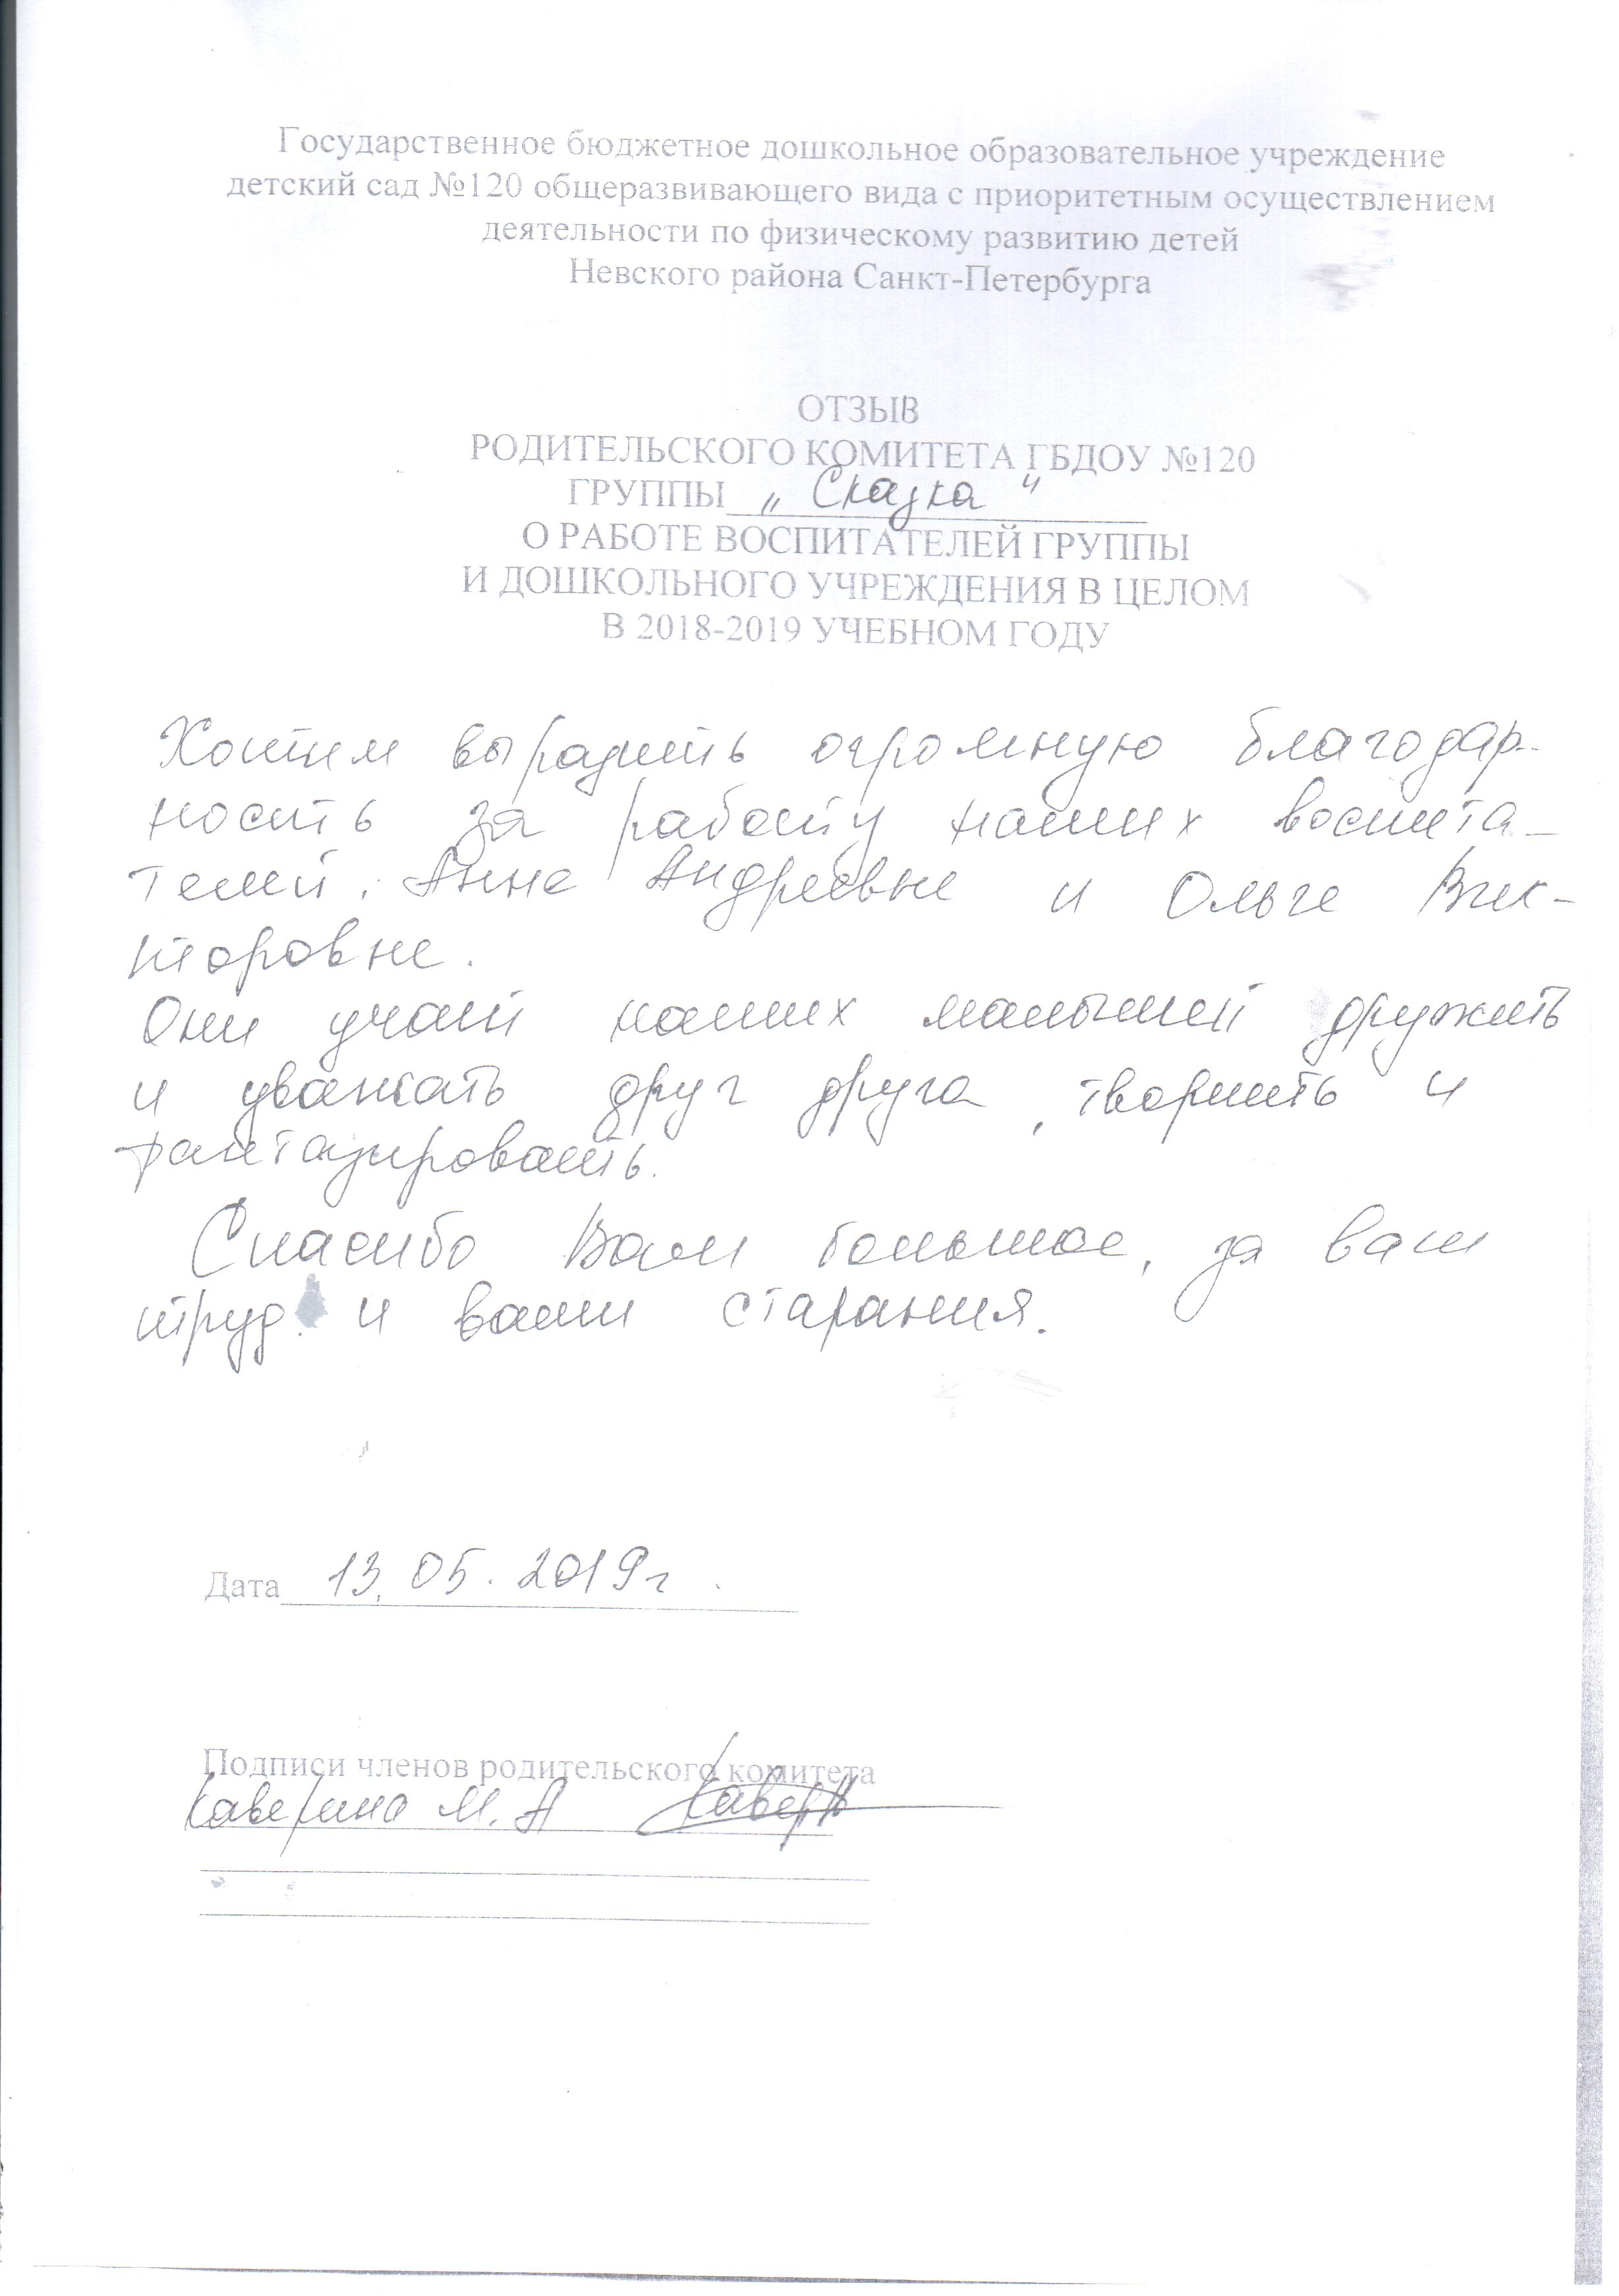 Государственное бюджетное дошкольное образовательное учреждение
детский сад №120 общеразвивающего вида с приоритетным осуществлением
деятельности по физическому развитию детей
Невского района Санкт-Петербурга
ОТЗЫВ
РОДИТЕЛЬСКОГО КОМИТЕТА ГБДОУ №120
ГРУППЫ „ Сказка "
О РАБОТЕ ВОСПИТАТЕЛЕЙ ГРУППЫ
И ДОШКОЛЬНОГО УЧРЕЖДЕНИЯ В ЦЕЛОМ
В 2018-2019 УЧЕБНОМ ГОДУ
Хотим выразить огромную благодар-
ность за работу наших воспита-
телей. Анне Андреевне и Ольге Вик-
торовне.
Они учат наших малышей дружить
и уважать друг друга, творить и
фантазировать.
Спасибо Вам большое, за ваш
труд и ваши старания.
Дата 13.05.2019г.
Подписи членов родительского комитета
Каверина М.А Кавер